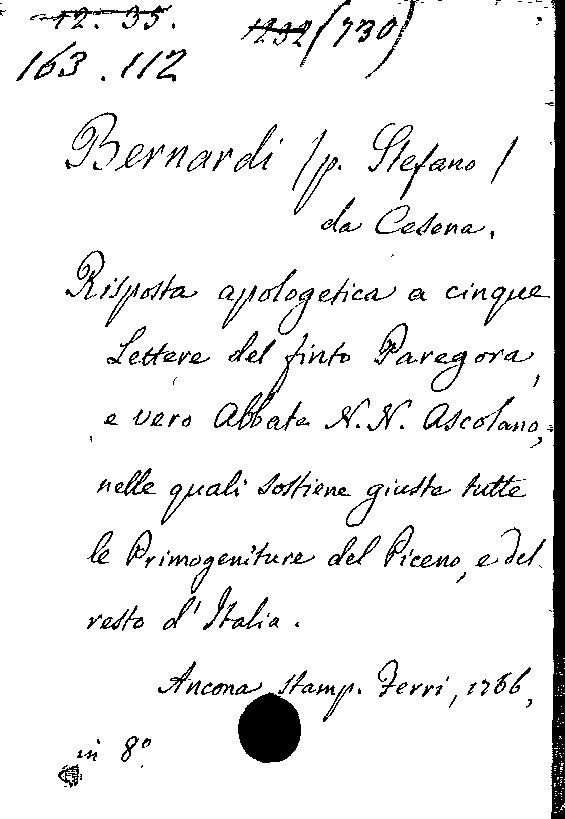 12. 35.
1232 (730)
163.112
Bernardi /p. Stefano/
da Cesena.
Risposta apologetica a cinque
Lettere del finto Paregora,
e vero Abbate N.N. Ascolano,
nelle quali sostiene giuste tutte
le Primogeniture del Piceno, e del
resto d'Italia.
Ancona, stamp. Ferri, 1786,
in 8°